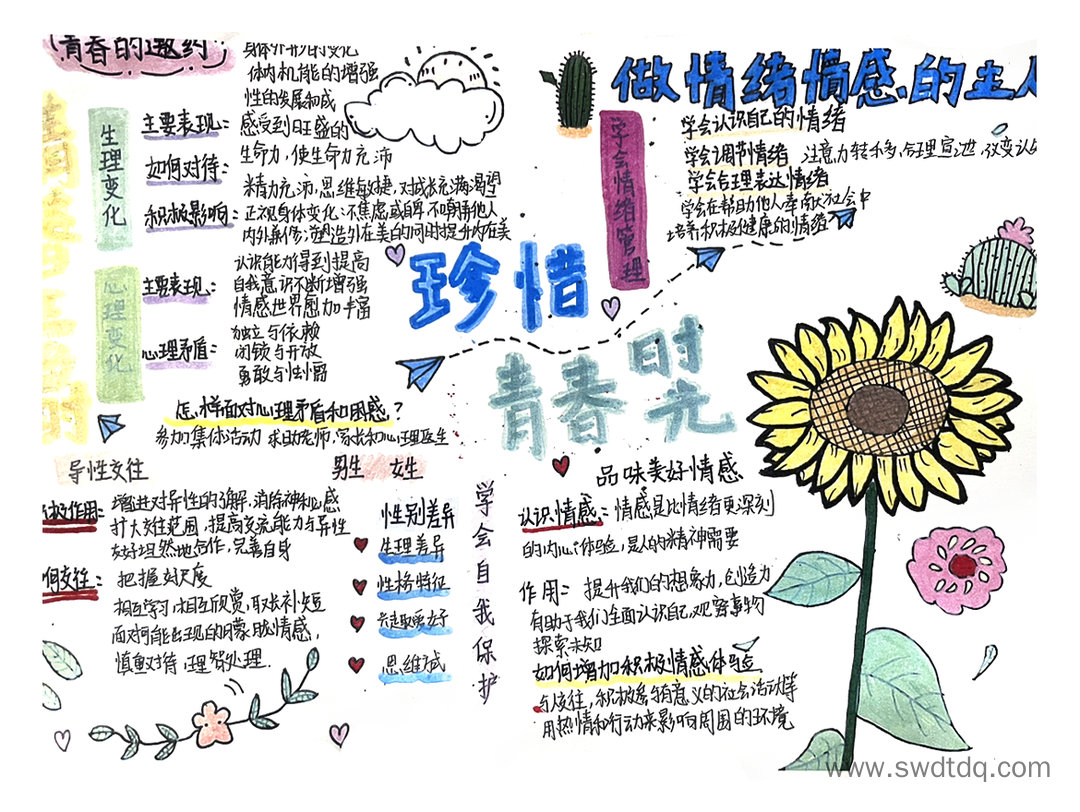 青春的邀约
生理变化
主要表现：
身体外形的变化
体内机能的增强
性的发展和成
如何对待：
感受到旺盛的
生命力，使生命力充沛
积极影响：
精力充沛，思维敏捷，对成长充满渴望
正视身体变化；不焦虑或自卑不嘲弄他人
内外兼修；塑造外在美的同时提升内在美
心理变化
主要表现：
认识能力得到提高
自我意识不断增强
情感世界愈加丰富
心理矛盾：
独立与依赖
闭锁与开放
勇敢与怯懦
怎样面对心理矛盾和困惑？
参加集体活动 求助老师，家长和心理医生
做情绪情感的主人
学会情绪管理
学会认识自己的情绪
学会调节情绪 注意力转移，合理宣泄，改变认
学会合理表达情绪
学会在帮助他人奉献社会中
培养积极健康的情绪
珍惜
青春时光
异性交往
增进对异性的了解，消除神秘感
扩大交往范围，提高交流能力与异性
友好坦然地合作，完善自身
何交往：
把握好尺度
相互学习，相互欣赏，取长补短
面对可能出现的朦胧情感，
慎重对待，理智处理.
男生 女生
性别差异
生理差异
性格特征
兴趣爱好
思维
学会自我保护
品味美好情感
认识情感：情感是比情绪更深刻
的内心体验，是人的精神需要
作用：提升我们的想象力，创造力
有助于我们全面认识自己，观察事物
探索未知
如何增加积极情感体验
与人交往，积极参与有意义的社会活动等
用热情和行动来影响周围的环境
www.swdtdq.com